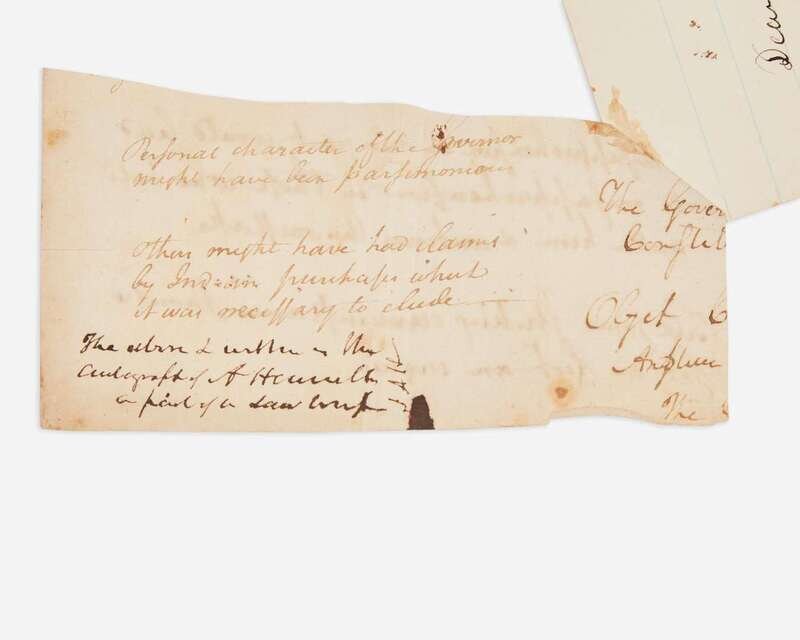 Personal character of the Governor
might have been parsimonious
Others might have had claims
by Indian purchases which
it was necessary to elude
The above & within is the
autograph of A Hamilton
a part of a Law brief
The Gover
Constit
Object
Answer
The
Dear